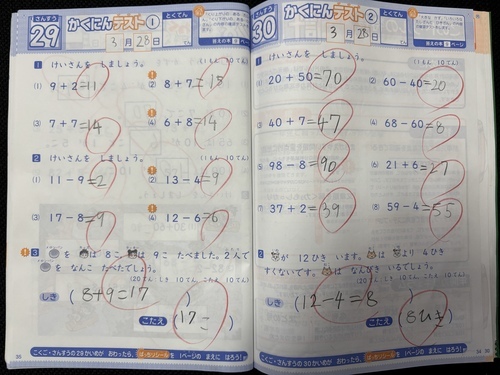 さんすう
29
かくにんテスト①
とくてん
3月28日
てん
答えの本 ページ
1 けいさんを しましょう。
(1もん 10てん)
(1) 9+2=11
(2) 8+7=15
(3) 7+7=14
(4) 6+8=14
2 けいさんを しましょう。
(1もん 10てん)
(1) 11-9=2
(2) 13-4=9
(3) 17-8=9
(4) 12-6=6
3 を は 8こ、 は 9こ たべました。2人で
を なんこ たべたでしょう。
(20てん しき 10てん こたえ 10てん)
しき (8+9=17)
こたえ (17こ)
こくご・さんすうの29かいめが おわったら、 シールを 1ページの まえに はろう!
30
さんすう
30
かくにんテスト②
とくてん
3月28日
てん
答えの本 ページ
1 けいさんを しましょう。
(1もん 10てん)
(1) 20+50=70
(2) 60-40=20
(3) 40+7=47
(4) 68-60=8
(5) 98-8=90
(6) 21+6=27
(7) 37+2=39
(8) 59-4=55
2 が 12ひき います。 は より 4ひき
すくないです。 は なんびき いるでしょう。
(20てん しき 10てん こたえ 10てん)
しき (12-4=8)
こたえ (8ひき)
こくご・さんすうの30かいめが おわったら、 シールを 1ページの まえに はろう!